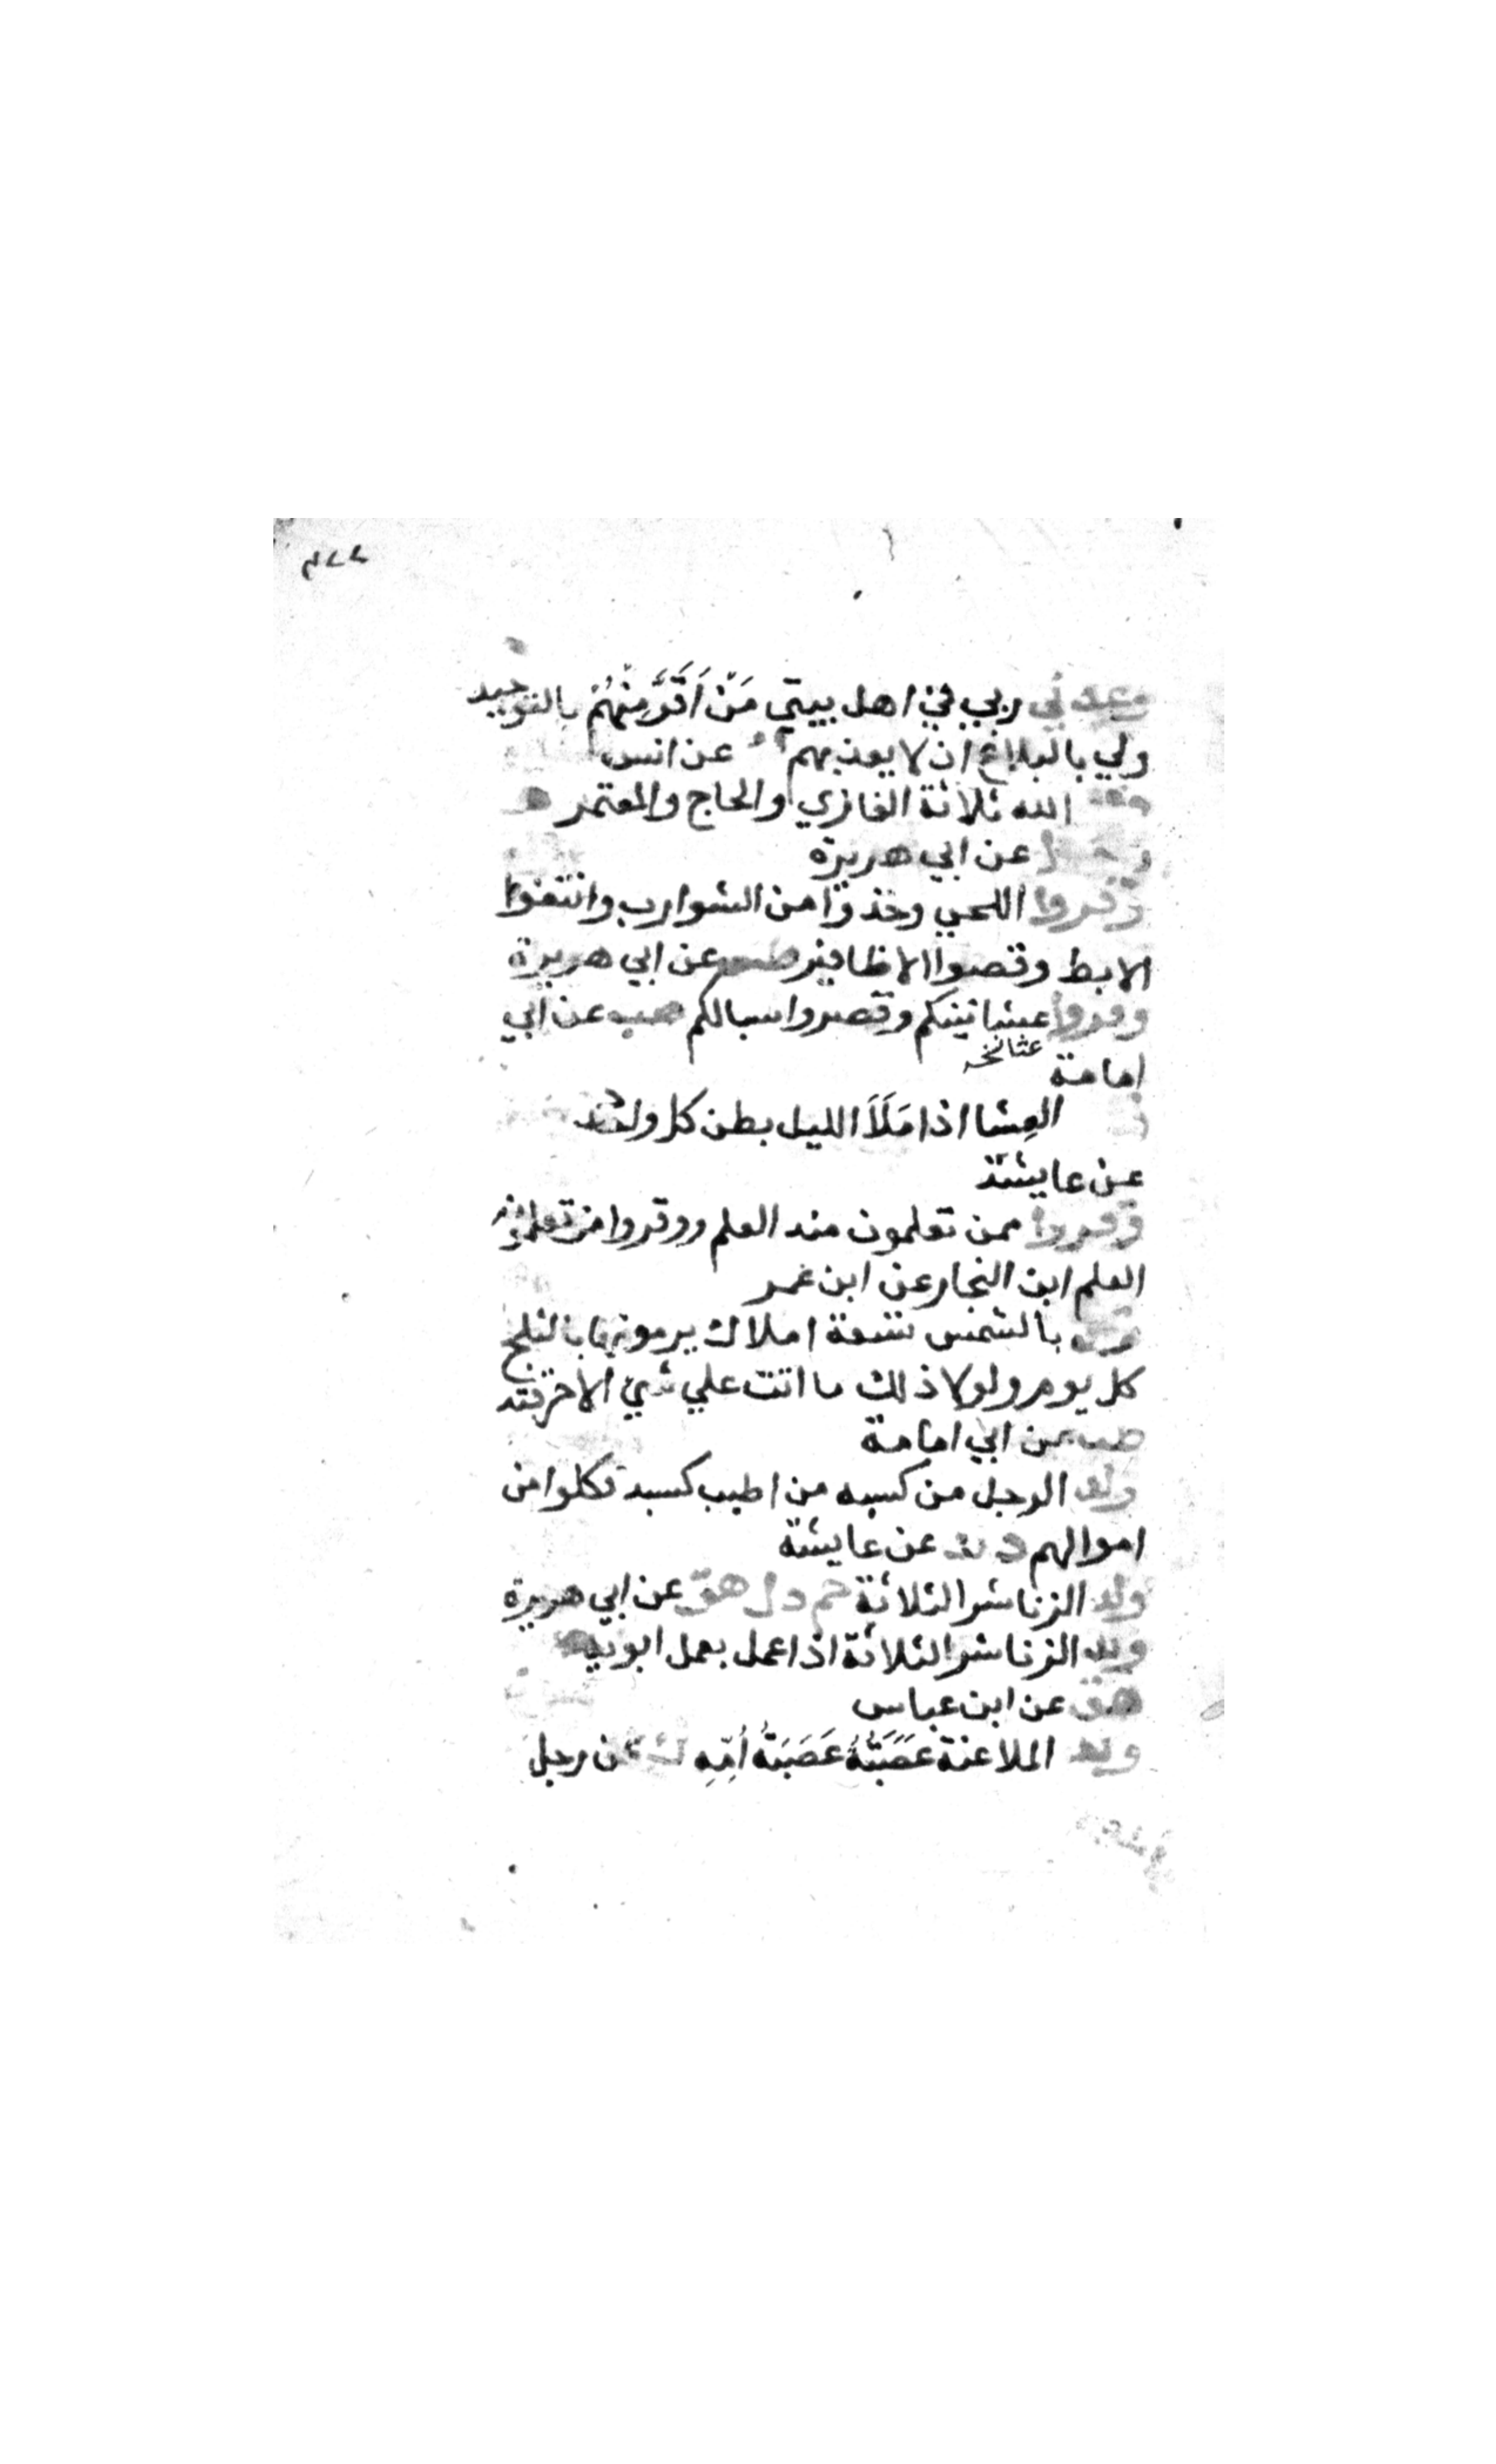 ٢٧٧
وعدني ربي في اهل بيتي مَنْ اَقَرَّ مِنْهُمْ بالتوحيد
ولي بالبلاغ ان لا يعذبهم عن انس
وفد الله ثلاثة الغازي والحاج والمعتمر
عن ابي هريرة
وفروا اللحي وخذوا من الشوارب وانتفوا
الابط وقصوا الاظافير طس عن ابي هريرة
وفروا عشانينكم وقصروا سبالكم هب عن ابي
عثا نخـ
امامة
العِشا اذا مَلَاَ الليل بطن كل واد
عن عايشة
وقروا ممن تعلمون منه العلم ووقروا من تعلمونه
العلم ابن النجار عن ابن عمر
وكل بالشمس تسعة املاك يرمونها بالثلج
كل يوم ولولا ذلك ما اتت علي شي الا حرقته
طب عن ابي امامة
ولد الرجل من كسبه من اطيب كسبه فكلوا من
اموالهم د عن عايشة
ولد الزنا شر الثلاثة حم د ك هق عن ابي هريرة
ولد الزنا شر الثلاثة اذا عمل بعمل ابويه
هق عن ابن عباس
ولد الملاعنة عَصَبَتُهُ عَصَبَةُ اُمِّهِ ك عن رجل